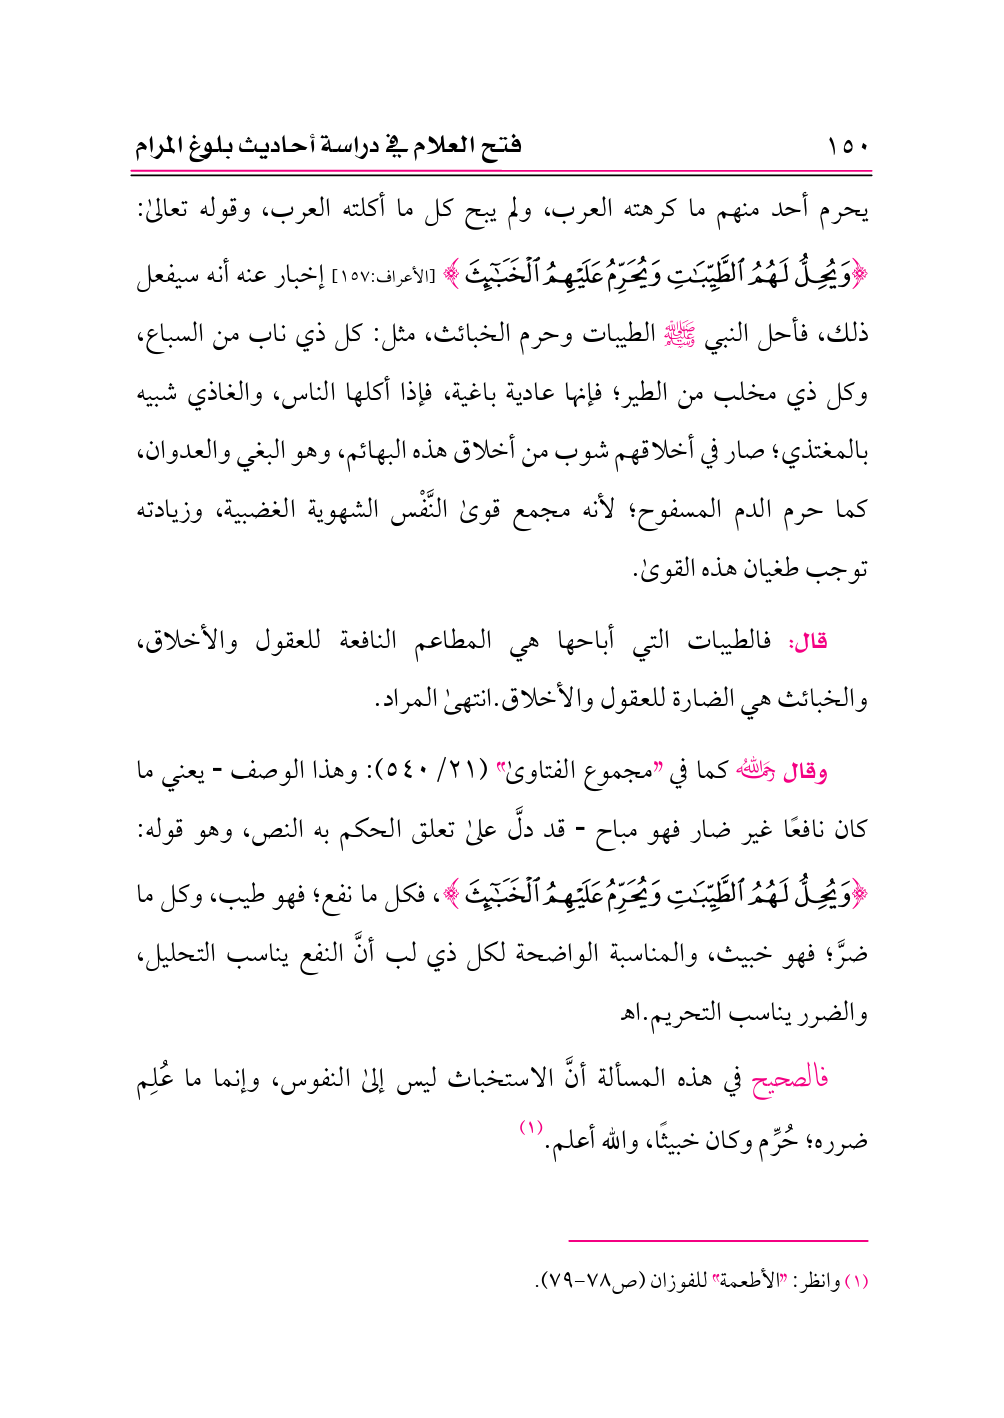 ١٥٠ فتح العلام في دراسة أحاديث بلوغ المرام
يحرم أحد منهم ما كرهته العرب، ولم يبح كل ما أكلته العرب، وقوله تعالىٰ:
﴿وَيُحِلُّ لَهُمُ ٱلطَّيِّبَٰتِ وَيُحَرِّمُ عَلَيْهِمُ ٱلْخَبَٰٓئِثَ﴾ [الأعراف:١٥٧] إخبار عنه أنه سيفعل
ذلك، فأحل النبي ﷺ الطيبات وحرم الخبائث، مثل: كل ذي ناب من السباع،
وكل ذي مخلب من الطير؛ فإنها عادية باغية، فإذا أكلها الناس، والغاذي شبيه
بالمغتذي؛ صار في أخلاقهم شوب من أخلاق هذه البهائم، وهو البغي والعدوان،
كما حرم الدم المسفوح؛ لأنه مجمع قوىٰ النَّفْس الشهوية الغضبية، وزيادته
توجب طغيان هذه القوىٰ.
قال: فالطيبات التي أباحها هي المطاعم النافعة للعقول والأخلاق،
والخبائث هي الضارة للعقول والأخلاق.انتهىٰ المراد.
وقال رحمه الله كما في "مجموع الفتاوىٰ" (٢١/ ٥٤٠): وهذا الوصف - يعني ما
كان نافعًا غير ضار فهو مباح - قد دلَّ علىٰ تعلق الحكم به النص، وهو قوله:
﴿وَيُحِلُّ لَهُمُ ٱلطَّيِّبَٰتِ وَيُحَرِّمُ عَلَيْهِمُ ٱلْخَبَٰٓئِثَ﴾، فكل ما نفع؛ فهو طيب، وكل ما
ضرَّ؛ فهو خبيث، والمناسبة الواضحة لكل ذي لب أنَّ النفع يناسب التحليل،
والضرر يناسب التحريم.اهـ
فالصحيح في هذه المسألة أنَّ الاستخباث ليس إلىٰ النفوس، وإنما ما عُلِم
ضرره؛ حُرِّم وكان خبيثًا، والله أعلم.(١)
(١) وانظر: "الأطعمة" للفوزان (ص٧٨-٧٩).